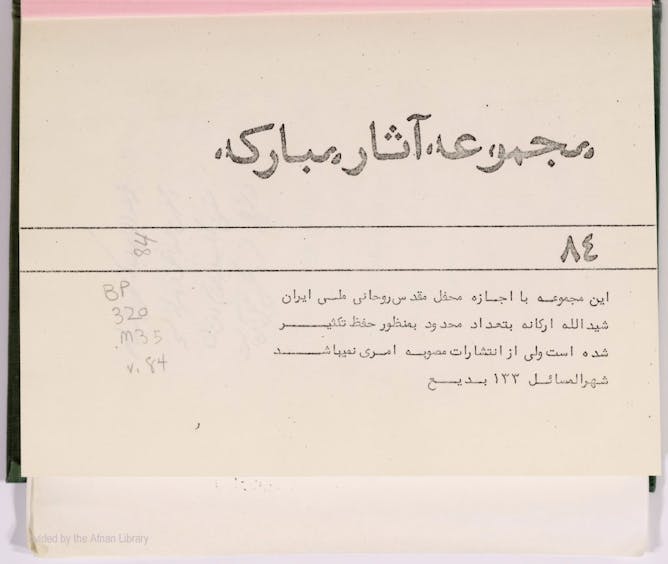 مجموعه آثار مباركه
٨٤
این مجموعه با اجازه محفل مقدس روحانی ملی ایران
شیدالله ارکانه بتعداد محدود بمنظور حفظ تکثیر
شده است ولی از انتشارات مصوبه امری نمیباشد
شهرالمسائل ۱۳۳ بدیع
84
BP
320
.M35
v.84
ided by the Afnan Library